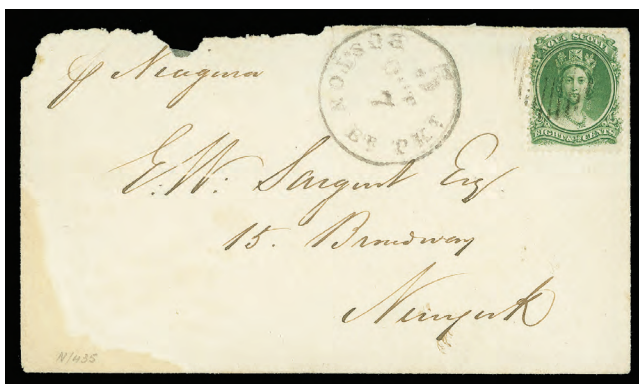 p Niagara
BOSTON
BR PKT
NOVA SCOTIA
EIGHT ½ CENTS
E. W. Sargent Esq.
15. Broadway
Newyork
N/435